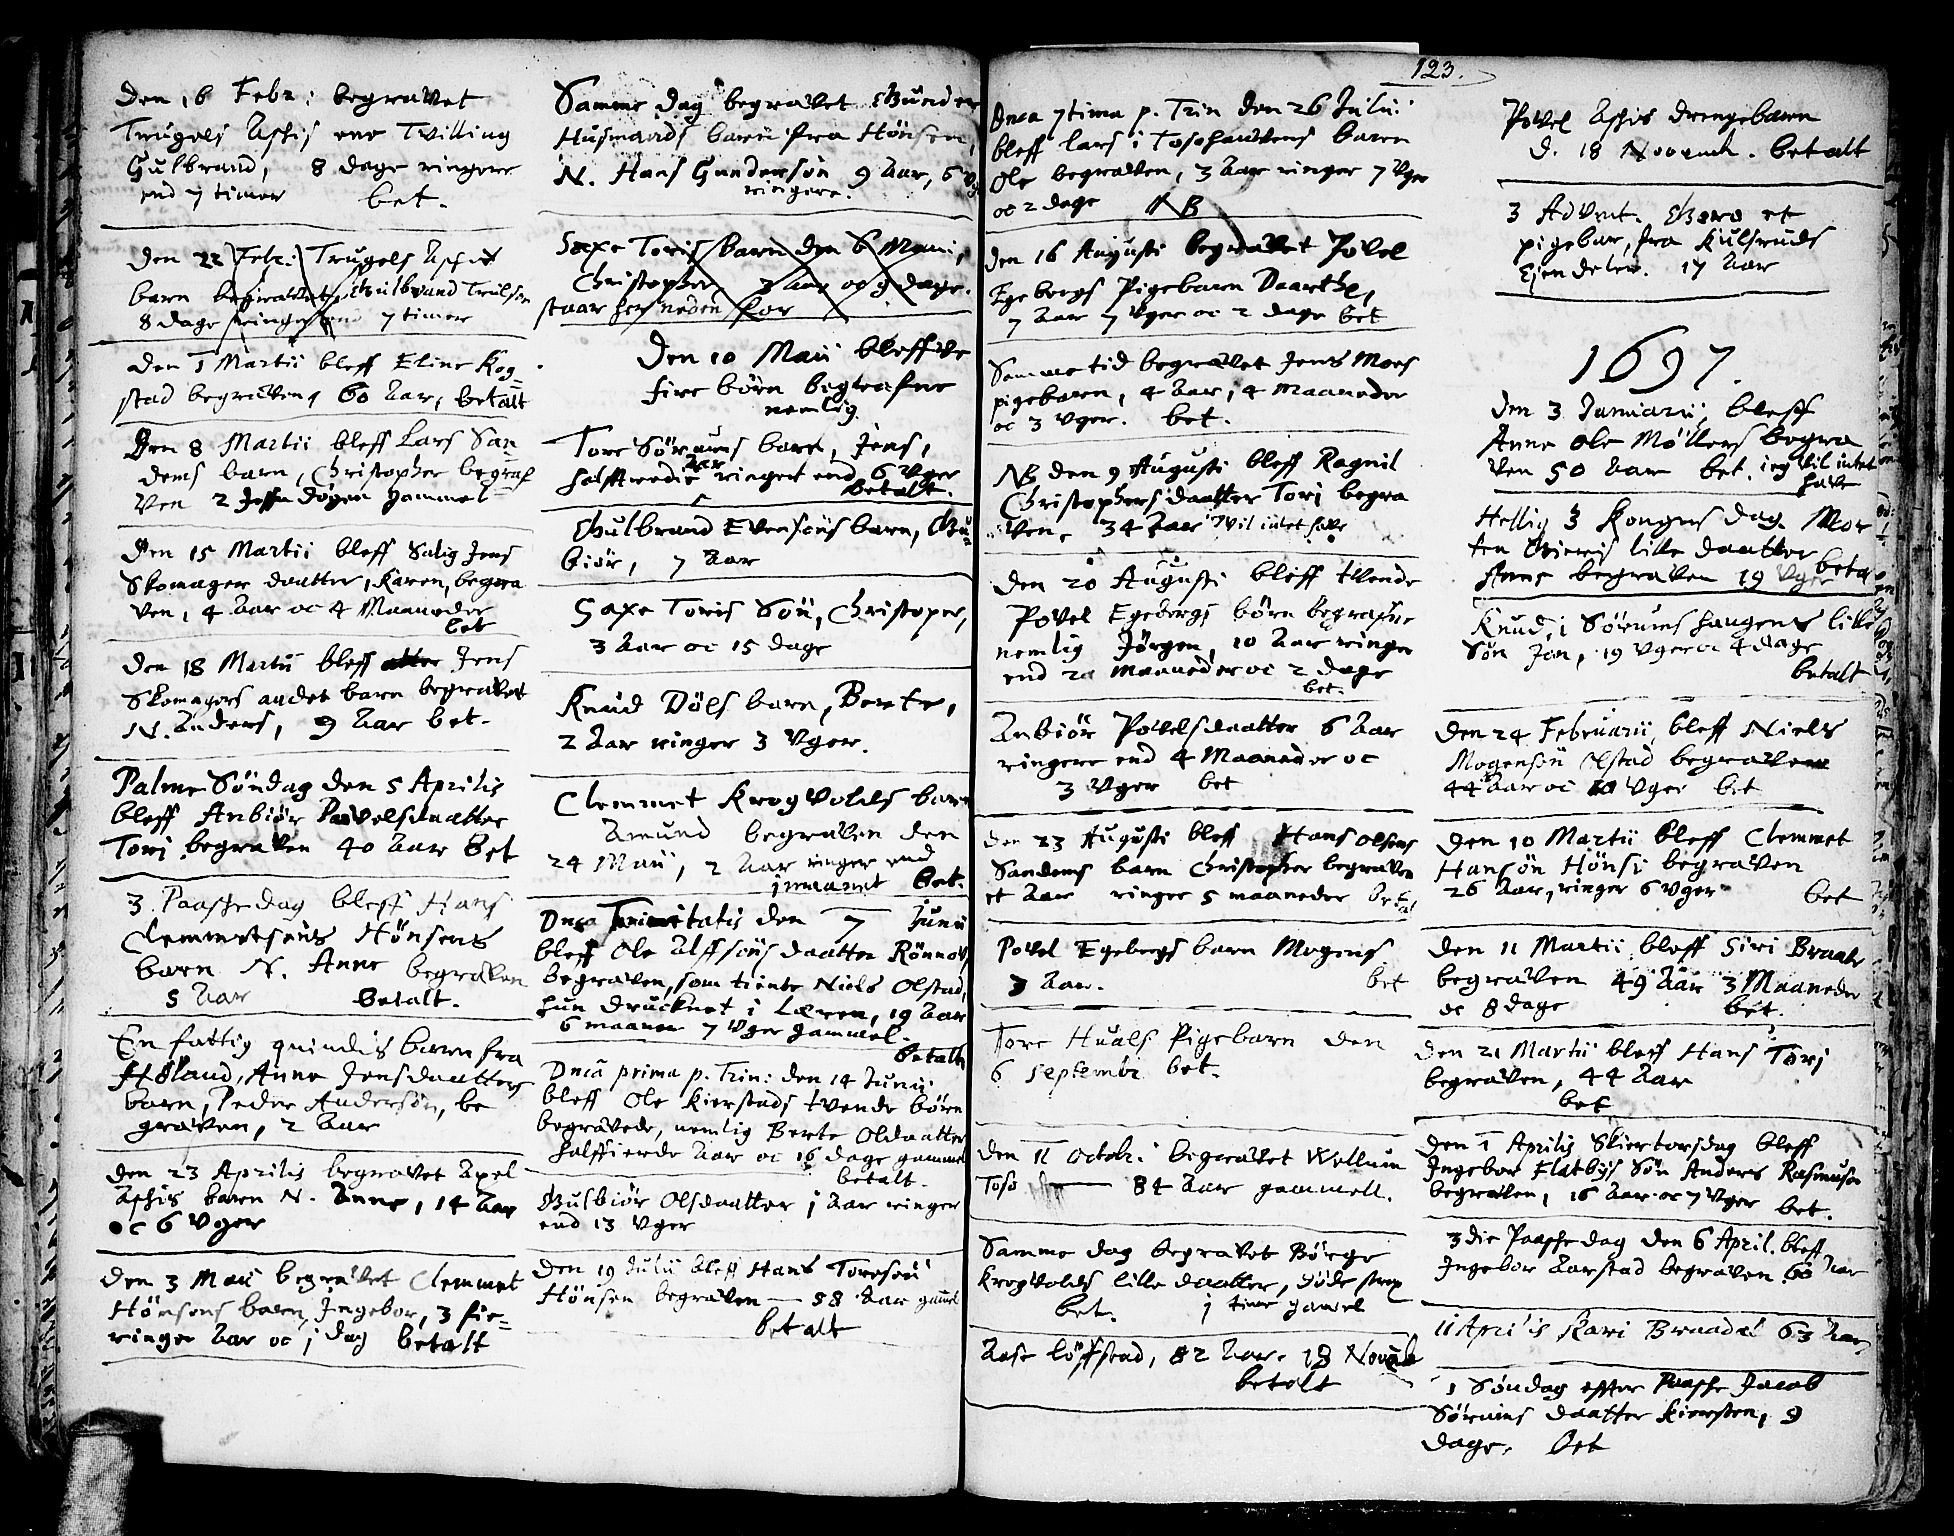 Den 16 Febr: begravet
Trugels Aschis ene Tvilling
Gulbrand, 8 dage ringere
end 7 timer bet.
Den 22 Febr: Trugels Aschis
barn begravet, Gulbrand Trulsen
8 dage ringer end 7 timer
Den 1 Martii bleff Eline Kog=
stad begraven 60 Aar, betalt
Den 8 Martii bleff Lars San=
dems barn, Christopher begraf
ven 2 døgen gammel
Den 15 Martii bleff Salig Jens
Skomager daatter, Karen, begra
ven, 4 Aar oc 4 Maaneder
bet
Den 18 Martii bleff Jens
Skomagers andet barn begravet
N. Anders, 9 Aar bet.
Palme Søndag den 5 Aprilis
bleff Anbiør Povelsdaatter
Tori begraven 40 Aar Bet
3 Paaschedag bleff Hans
Clemmetsøns Hønsens
barn N. Anne begraven
5 Aar betalt.
En fattig quindis barn fra
Høland, Anne Jensdaatters
barn, Peder Andersøn, be
graven, 2 Aar
Den 23 Aprilis begravet Axel
Aschis barn N. Anne, 14 Aar
oc 6 Vger
Den 3 Maii begravet Clemmet
Hønsens barn, Ingebor, 3 fie=
ringer Aar oc 1 dag betalt
Samme dag begravet Gunder
Husmands barn fra Hønsen,
N. Hans Gundersøn 9 Aar, 6 Vg
ringere.
Saxe Toris barn den 6 Maii,
Christopher 3 Aar oc 9 dage.
staar her neden for
Den 10 Maii bleffve
fire børn begrafne
nemlig
Tore Sørums barn, Jens,
halfftredie Aar ringer end 6 Vger
betalt.
Gulbrand Evensøns barn, Gu=
biør, 7 Aar
Saxe Toris Søn, Christoper,
3 Aar oc 15 dage
Knud Døls barn, Berte,
2 Aar ringer 3 Vger.
Clemmet Krogvolds barn
Amund begraven den
24 Maii, 2 Aar ringer end
bet.
Dnca Trinitatis den 7 Junii
bleff Ole Alffsøns daatter Rønnov,
begraven, som tiente Niels Olstad,
hun drucknet i Læren, 19 Aar
6 maaner 7 Vger gammel.
betalt
Dnca prima p. Trin: den 14 Junii
bleff Ole Kierstads tvende børn
begravede, nemlig Berte Olsdaatter
halffierde Aar oc 16 dage gammel
betalt.
Gulbiør Olsdaatter 1 Aar ringer
end 13 Vger
Den 19 Julii bleff Hans Toresøn
Hønsen begraven — 58 Aar gamel
betalt
123.
Dnca 7tima p. Trin den 26 Julii
bleff Lars i Tosohautens barn
Ole begraven, 3 Aar ringer 7 Vger
oc 2 dage NB
Den 16 Augusti begravet Povel
Egebergs Pigebarn Daarthe,
7 Aar 7 Vger oc 2 dage bet
Samme tid begravet Jens Moes
pigebarn, 4 Aar, 4 Maaneder
oc 3 Vger. bet.
NB den 9 Augusti bleff Ragnil
Christophersdaatter Tori begra
ven, 34 Aar Vil intet have
Den 20 Augusti bleff tvende
Povel Egebergs børn begrafne
nemlig Jørgen, 10 Aar ringer
end 2 maaneder oc 2 dage
bet.
Anbiør Povelsdaatter 6 Aar
ringere end 4 Maaneder oc
3 Vger bet
Den 23 Augusti bleff Hans Olsens
Sandems barn Christopher begraven
et Aar ringer 5 maaneder betal
Povel Egebergs barn Mogens
3 Aar. bet
Tore Huals Pigebarn den
6 Septembr bet.
Den 11 Octobr: begravet Wellum
Tosø — 84 Aar gammell.
Samme dag begravet Børge
Krogvolds lille daatter, døde strax
bet. 1 time gamel
Aase Løffstad, 82 Aar. 18 Novemb
betalt
Povel Aschis drengebarn
d. 18 Novemb. betalt
3 Advent. Gbora et
pigebar, fra Kulsruds
Ejendelen. 17 Aar
1697.
Den 3 Januarii bleff
Anne Ole Møllers begra
ven 50 Aar bet. ieg vil intet
have
Hellig 3 Kongers dag. Mor
ten lille daatter
Anne begraven 19 Vger beta
Knud i Sørumshaugens lille
Søn Jon, 19 Vger oc 4 dage
betalt
Den 24 Februarii bleff Niels
Mogensøn Olstad begraven
44 Aar oc 10 Vger bet
Den 10 Martii bleff Clemmet
Hansøn Hønsi begraven
26 Aar, ringer 6 Vger bet
Den 11 Martii bleff Siri Braate
begraven 49 Aar 3 Maaneder
oc 8 dage bet.
Den 21 Martii bleff Hans Tori
begraven, 44 Aar
bet
Den 1 Aprilis Skiertorsdag bleff
Ingebor Flatbys Søn Anders Rasmusøn
begraven, 16 Aar oc 7 Vger bet.
3die Paaschedag den 6 April. bleff
Ingebor Aarstad begraven 60 Aar
11 Aprilis Kari Braadal 63 Aar
1 Søndag effter Paasche Jacob
Sørums daatter Kiersten, 9
dage, bet